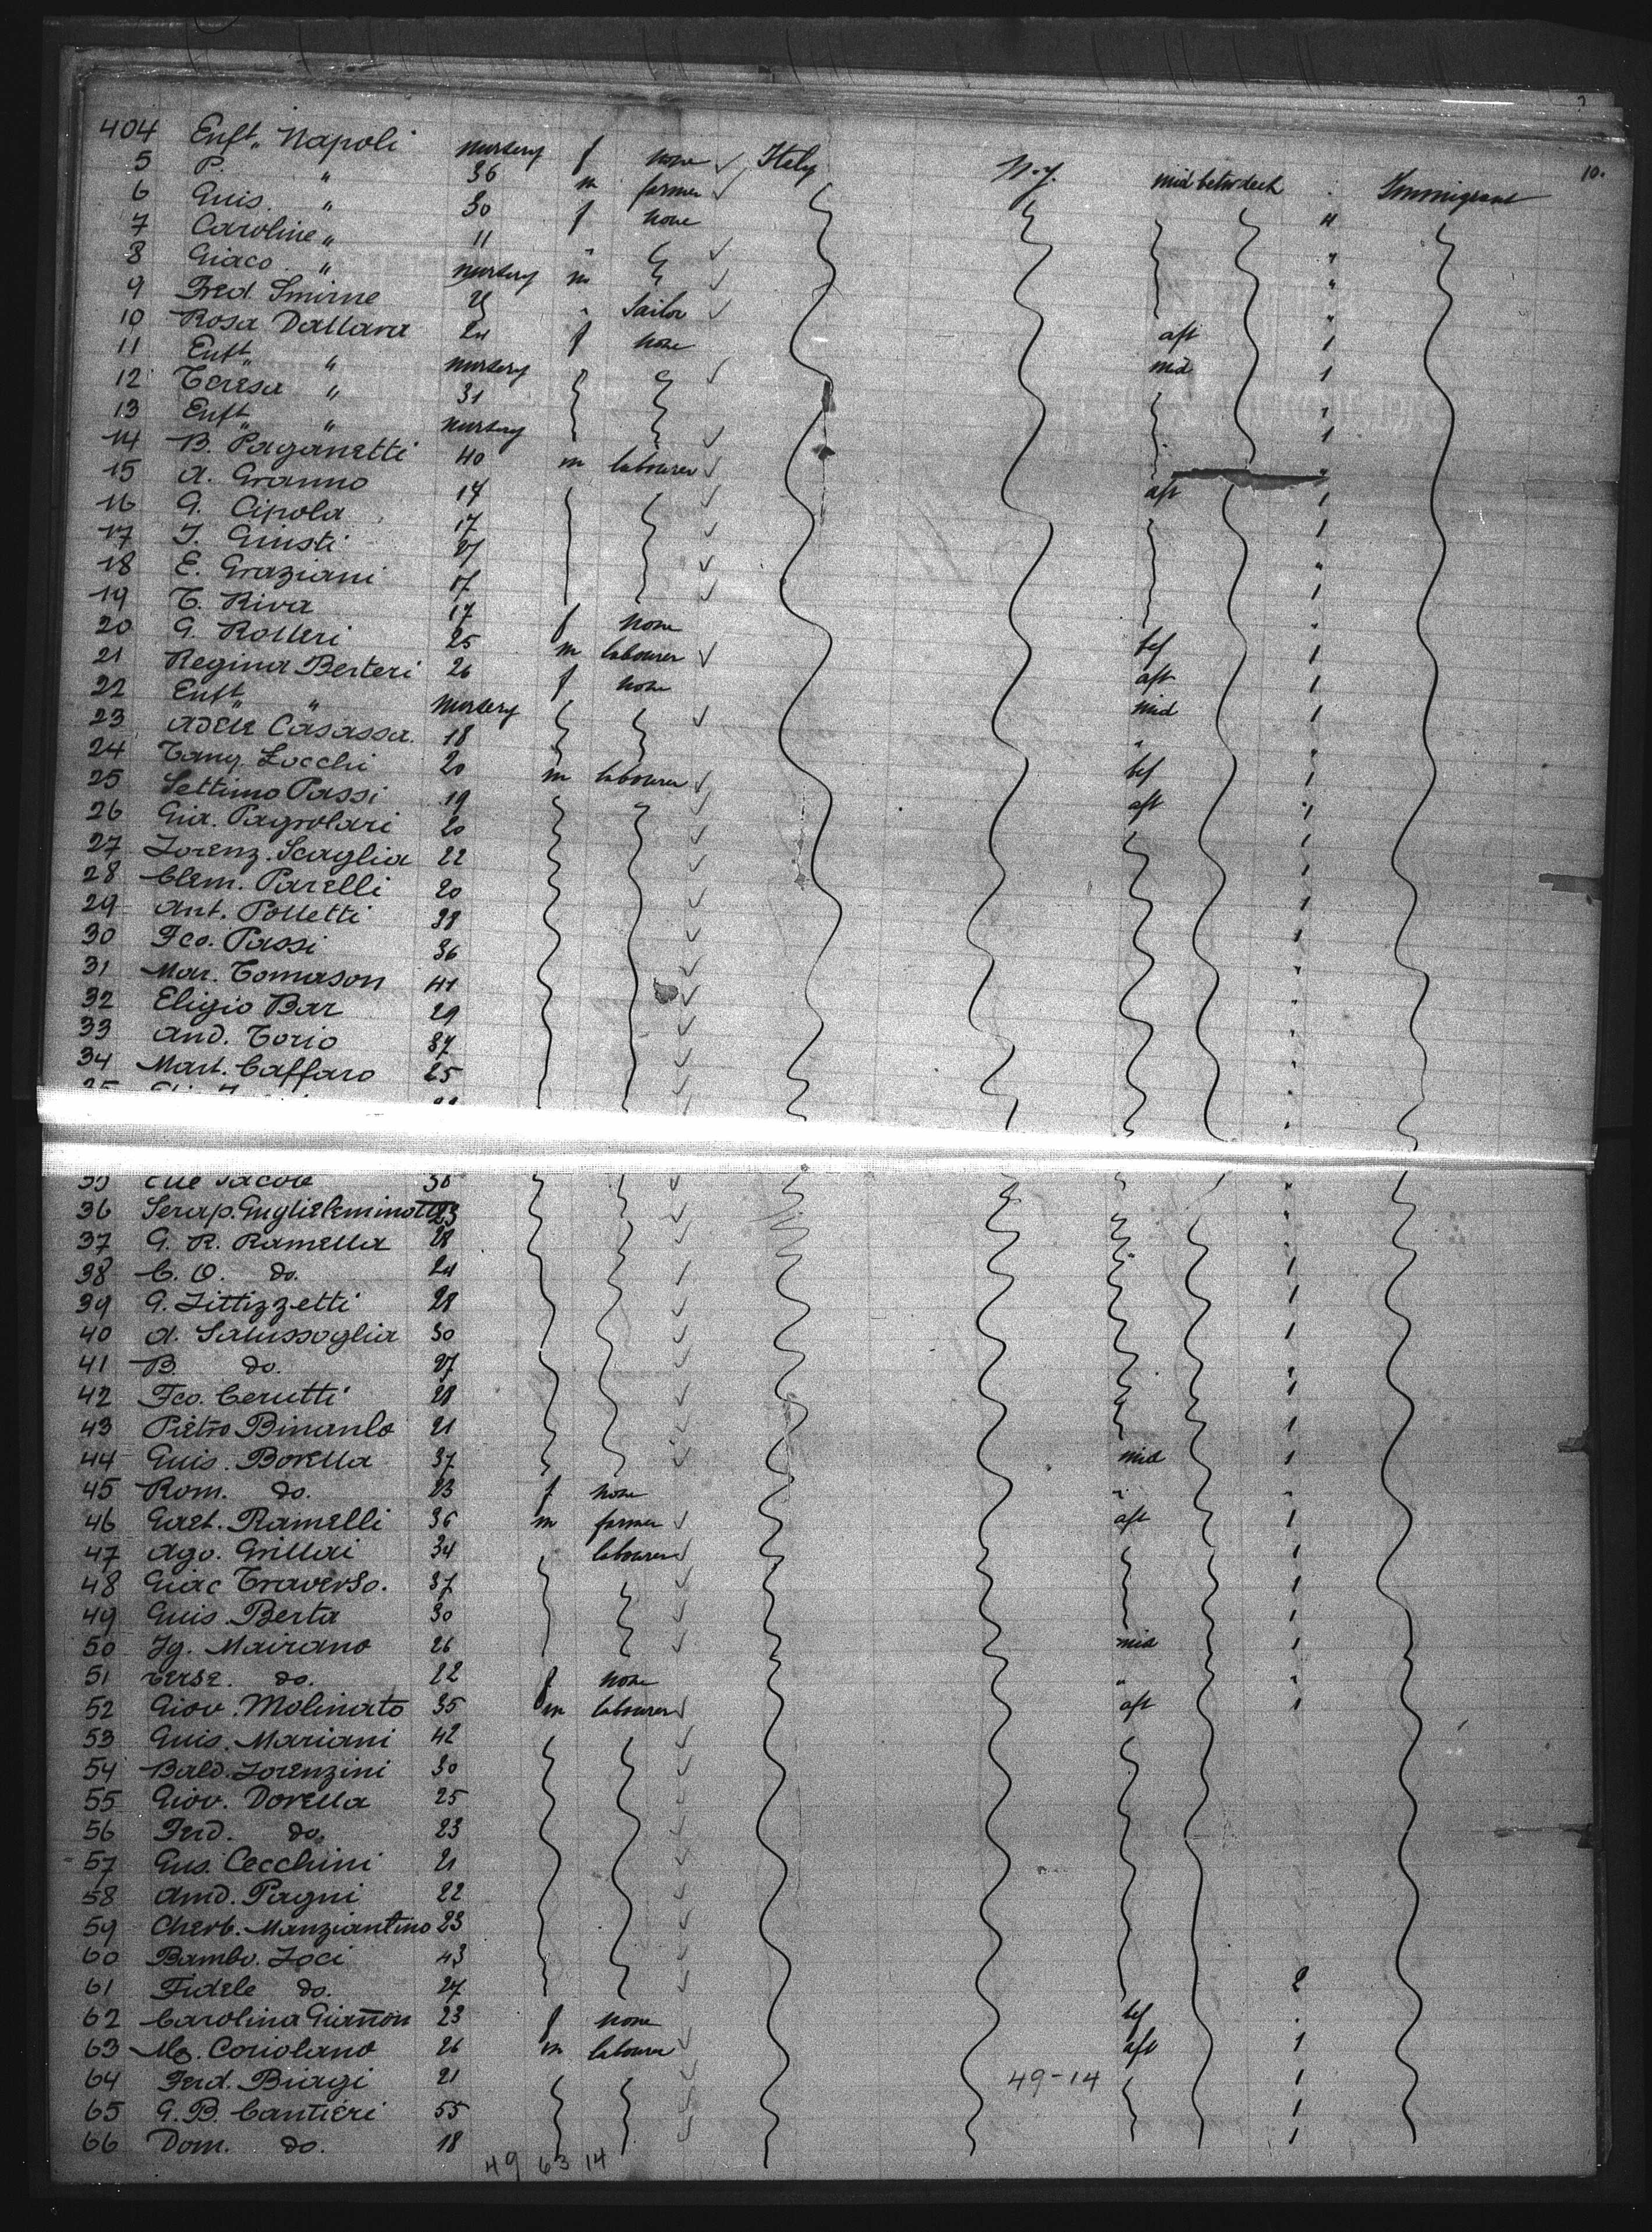 10.
404 Enft „ Napoli nursery f none ✓ Italy N.Y. mid betw deck Immigrant
5 P. „ 36 m farmer ✓ "
6 Guis. „ 30 f none "
7 Caroline „ 11 " ✓ "
8 Giaco „ nursery m ✓ "
9 Fred. Smirne " Sailor ✓ aft 1
10 Rosa Dallara 24 f none mid 1
11 Enft „ „ nursery ✓
12 Teresa „ 31 1
13 Enft „ „ nursery ✓
14 B. Paganetti 40 m labourer ✓ aft 1
15 A. Granno 17 ✓ 1
16 G. Cipola 17 ✓
17 J. Giusti 27 ✓ 1
18 E. Graziani 17 ✓
19 T. Riva 17 f none bef 1
20 G. Rolleri 25 m labourer ✓ aft 1
21 Regina Berteri 26 f none mid 1
22 Enft „ „ nursery ✓ "
23 Adele Casassa. 18 bef 1
24 Tanq. Zocchi 20 m labourer ✓ aft 1
25 Settimo Passi 19 ✓ 1
26 Gia. Pagnolari 20 ✓ 1
27 Lorenz. Scaglia 22 ✓ 1
28 Clem. Parelli 20 ✓ 1
29 Ant. Polletti 38 ✓
30 Fco. Passi 36 ✓
31 Mar. Tomason 41 ✓
32 Eligio Bar 29 ✓
33 And. Torio 37 ✓
34 Mart. Caffaro 25 ✓
36 Serap. Guglieleminotti 23 ✓
37 G. R. Ramella 28 ✓ 1
38 C. O. do. 24 ✓ 1
39 G. Littizzetti 28 ✓ 1
40 A. Salussoglia 30 ✓
41 B. do. 27 ✓ 1
42 Fco. Cerutti 28 ✓ 1
43 Pietro Binanlo 21 ✓ 1
44 Guis. Borella 37 ✓ mid 1
45 Rom. do. 23 f none " "
46 Gaet. Ramelli 36 m farmer ✓ aft 1
47 Ago. Grillai 34 labourer ✓ 1
48 Giac Traverso. 37 ✓ 1
49 Guis. Berta 30 ✓ 1
50 Ig. Mairano 26 ✓ mid 1
51 Terse. do. 22 f none " "
52 Giov. Molinato 35 m labourer ✓ aft 1
53 Guis. Mariani 42 ✓
54 Bald. Lorenzini 30 ✓
55 Giov. Dorella 25 ✓
56 Ferd. do. 23 ✓
57 Gus. Cecchini 21 ✓
58 Amd. Pagni 22 ✓
59 Cherb. Manziantino 23 ✓
60 Bambo. Loci 43 ✓
61 Fidele do. 27 ✓ 2
62 Carolina Giañon 23 f none bef
63 Mg. Coriolano 26 m labourer ✓ aft 1
64 Ferd. Biagi 21 ✓ 49-14 1
65 G. B. Cantieri 55 ✓ 1
66 Dom. do. 18 ✓ 1
49 63 14